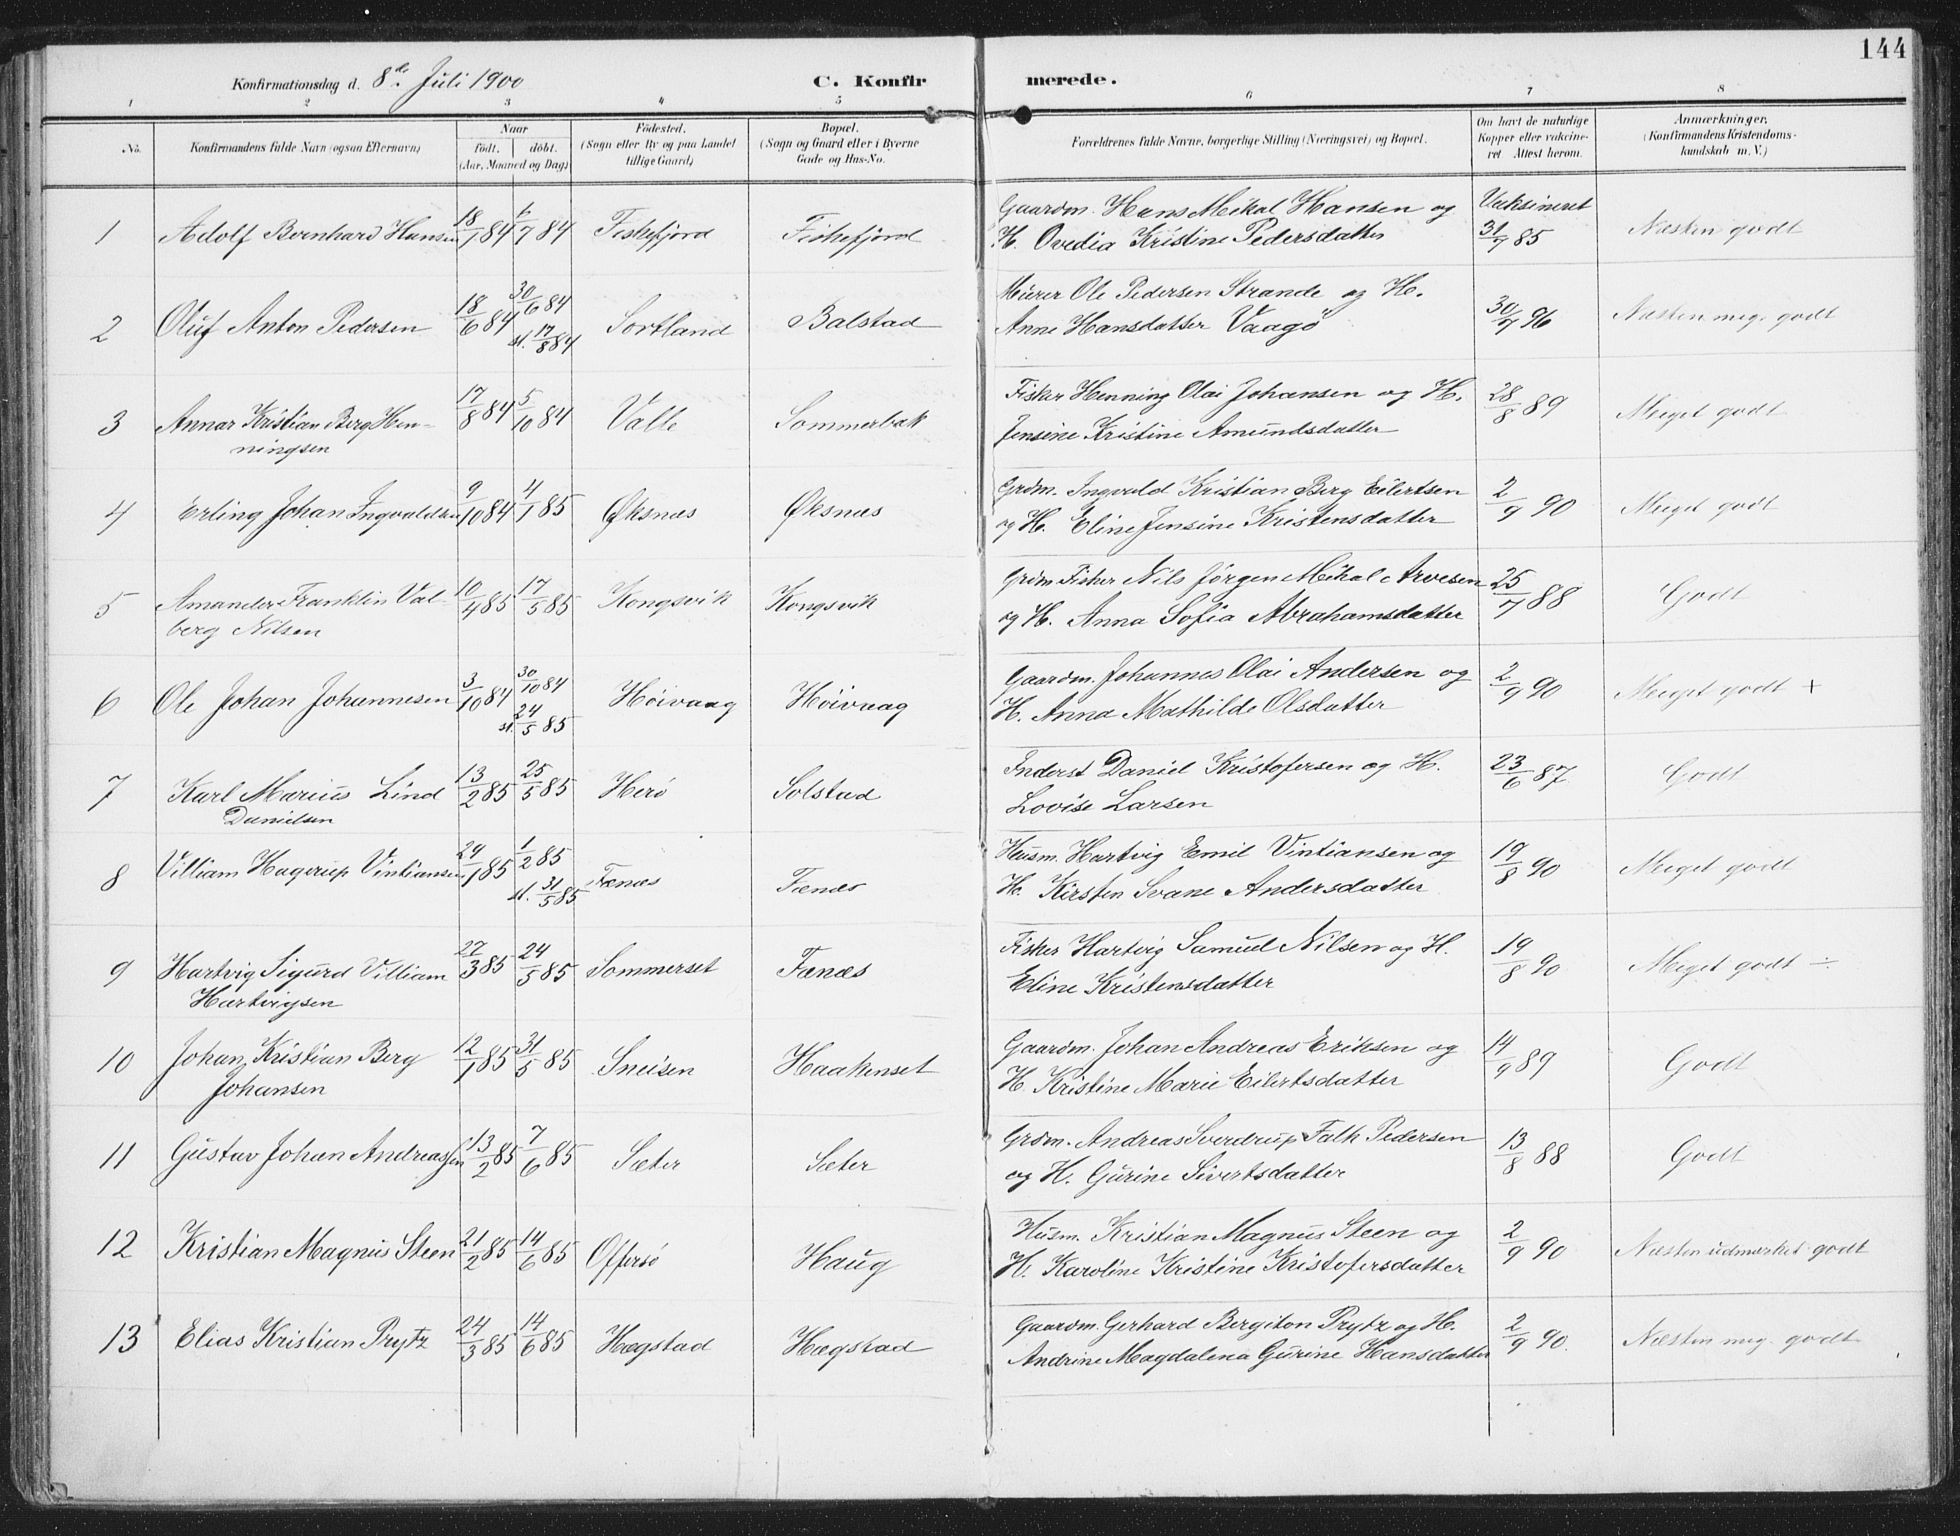 144
Konfirmationsdag d. 8de Juli 1900 C. Konfirmerede.
1 2 3 4 5 6 7 8
No. Konfirmandens fulde Navn (ogsaa Efternavn) Naar født. døbt. (Aar, Maaned og Dag) Fødested. (Sogn eller By og paa Landet tillige Gaard) Bopæl. (Sogn og Gaard eller i Byerne Gade og Hus-No. Forældrenes fulde Navne, borgerlige Stilling (Næringsvei) og Bopæl. Om havt de naturlige Kopper eller vakcineret Attest herom. Anmærkninger. (Konfirmandens Kristendomskundskab m. V.)
1 Adolf Bernhard Hansen 18/1 84 6/7 84 Fiskefjord Fiskefjord Gaardm. Hans Mekal Hansen og H. Ovedia Kristine Pedersdatter Vaksineret 31/7 85 Næsten godt
2 Oluf Anton Pedersen 18/6 84 30/6 84 st. 17/8 84 Sortland Balstad Murer Ole Pedersen Strande og H. Anne Hansdatter Vaagø 30/7 96 Næsten meg. godt
3 Annar Kristian Berg Henningsen 17/8 84 5/10 84 Valle Sommerbak Fisker Henning Olai Johansen og H. Jensine Kristine Amundsdatter 28/8 89 Meget godt
4 Erling Johan Ingvaldsen 9/10 84 4/1 85 Øksnæs Øksnæs Grdm. Ingvald Kristian Berg Eilertsen og H. Eline Jensine Kristensdatter 2/9 90 Meget godt
5 Amander Franklin Valberg Nilsen 10/4 85 17/5 85 Kongsvik Kongsvik Grdm. Fisker Nils Jørgen Mekal Arvesen og H. Anna Sofia Abrahamsdatter 25/7 88 Godt
6 Ole Johan Johannesen 3/10 84 30/10 84 st. 24/5 85 Høivaag Høivaag Gaardm. Johannes Olai Andersen og H. Anna Mathilde Olsdatter 2/9 90 Meget godt +
7 Karl Marius Lind Danielsen 13/2 85 25/5 85 Herø Solstad Inderst Daniel Kristofersen og H. Lovise Larsen 23/6 87 Godt
8 Villiam Hagerup Vintiansen 24/1 85 1/2 85 st. 31/5 85 Fænæs Fænæs Husm. Hartvig Emil Vintiansen og H. Kirsten Svane Andersdatter 19/8 90 Meget godt
9 Hartvig Sigurd Villiam Hartvigsen 27/3 85 24/5 85 Sommerset Fænæs Fisker Hartvig Samuel Nilsen og H. Eline Kristensdatter 19/8 90 Meget godt ÷
10 Johan Kristian Berg Johansen 12/1 85 31/5 85 Sneisen Haakenset Gaardm. Johan Andreas Eriksen og H. Kristine Marie Eilertsdatter 14/9 89 Godt
11 Gustav Johan Andreassen 13/2 85 7/6 85 Sæter Sæter Grdm. Andreas Sverdrup Falk Pedersen og H. Gurine Sivertsdatter 13/8 88 Godt
12 Kristian Magnus Steen 21/2 85 14/6 85 Offersø Haug Husm. Kristian Magnus Steen og H. Karoline Kristine Kristofersdatter 2/9 90 Næsten udmærket godt
13 Elias Kristian Prytz 24/3 85 14/6 85 Hægstad Hægstad Gaardm. Gerhard Bergiton Prytz og H. Andrine Magdalena Gurine Hansdatter 2/9 90. Næsten meg. godt